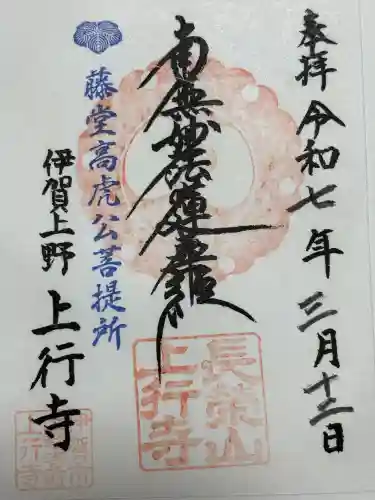 奉拝 令和七年三月十三日
南無妙法蓮華経
藤堂高虎公菩提所
伊賀上野 上行寺
長栄山
上行寺